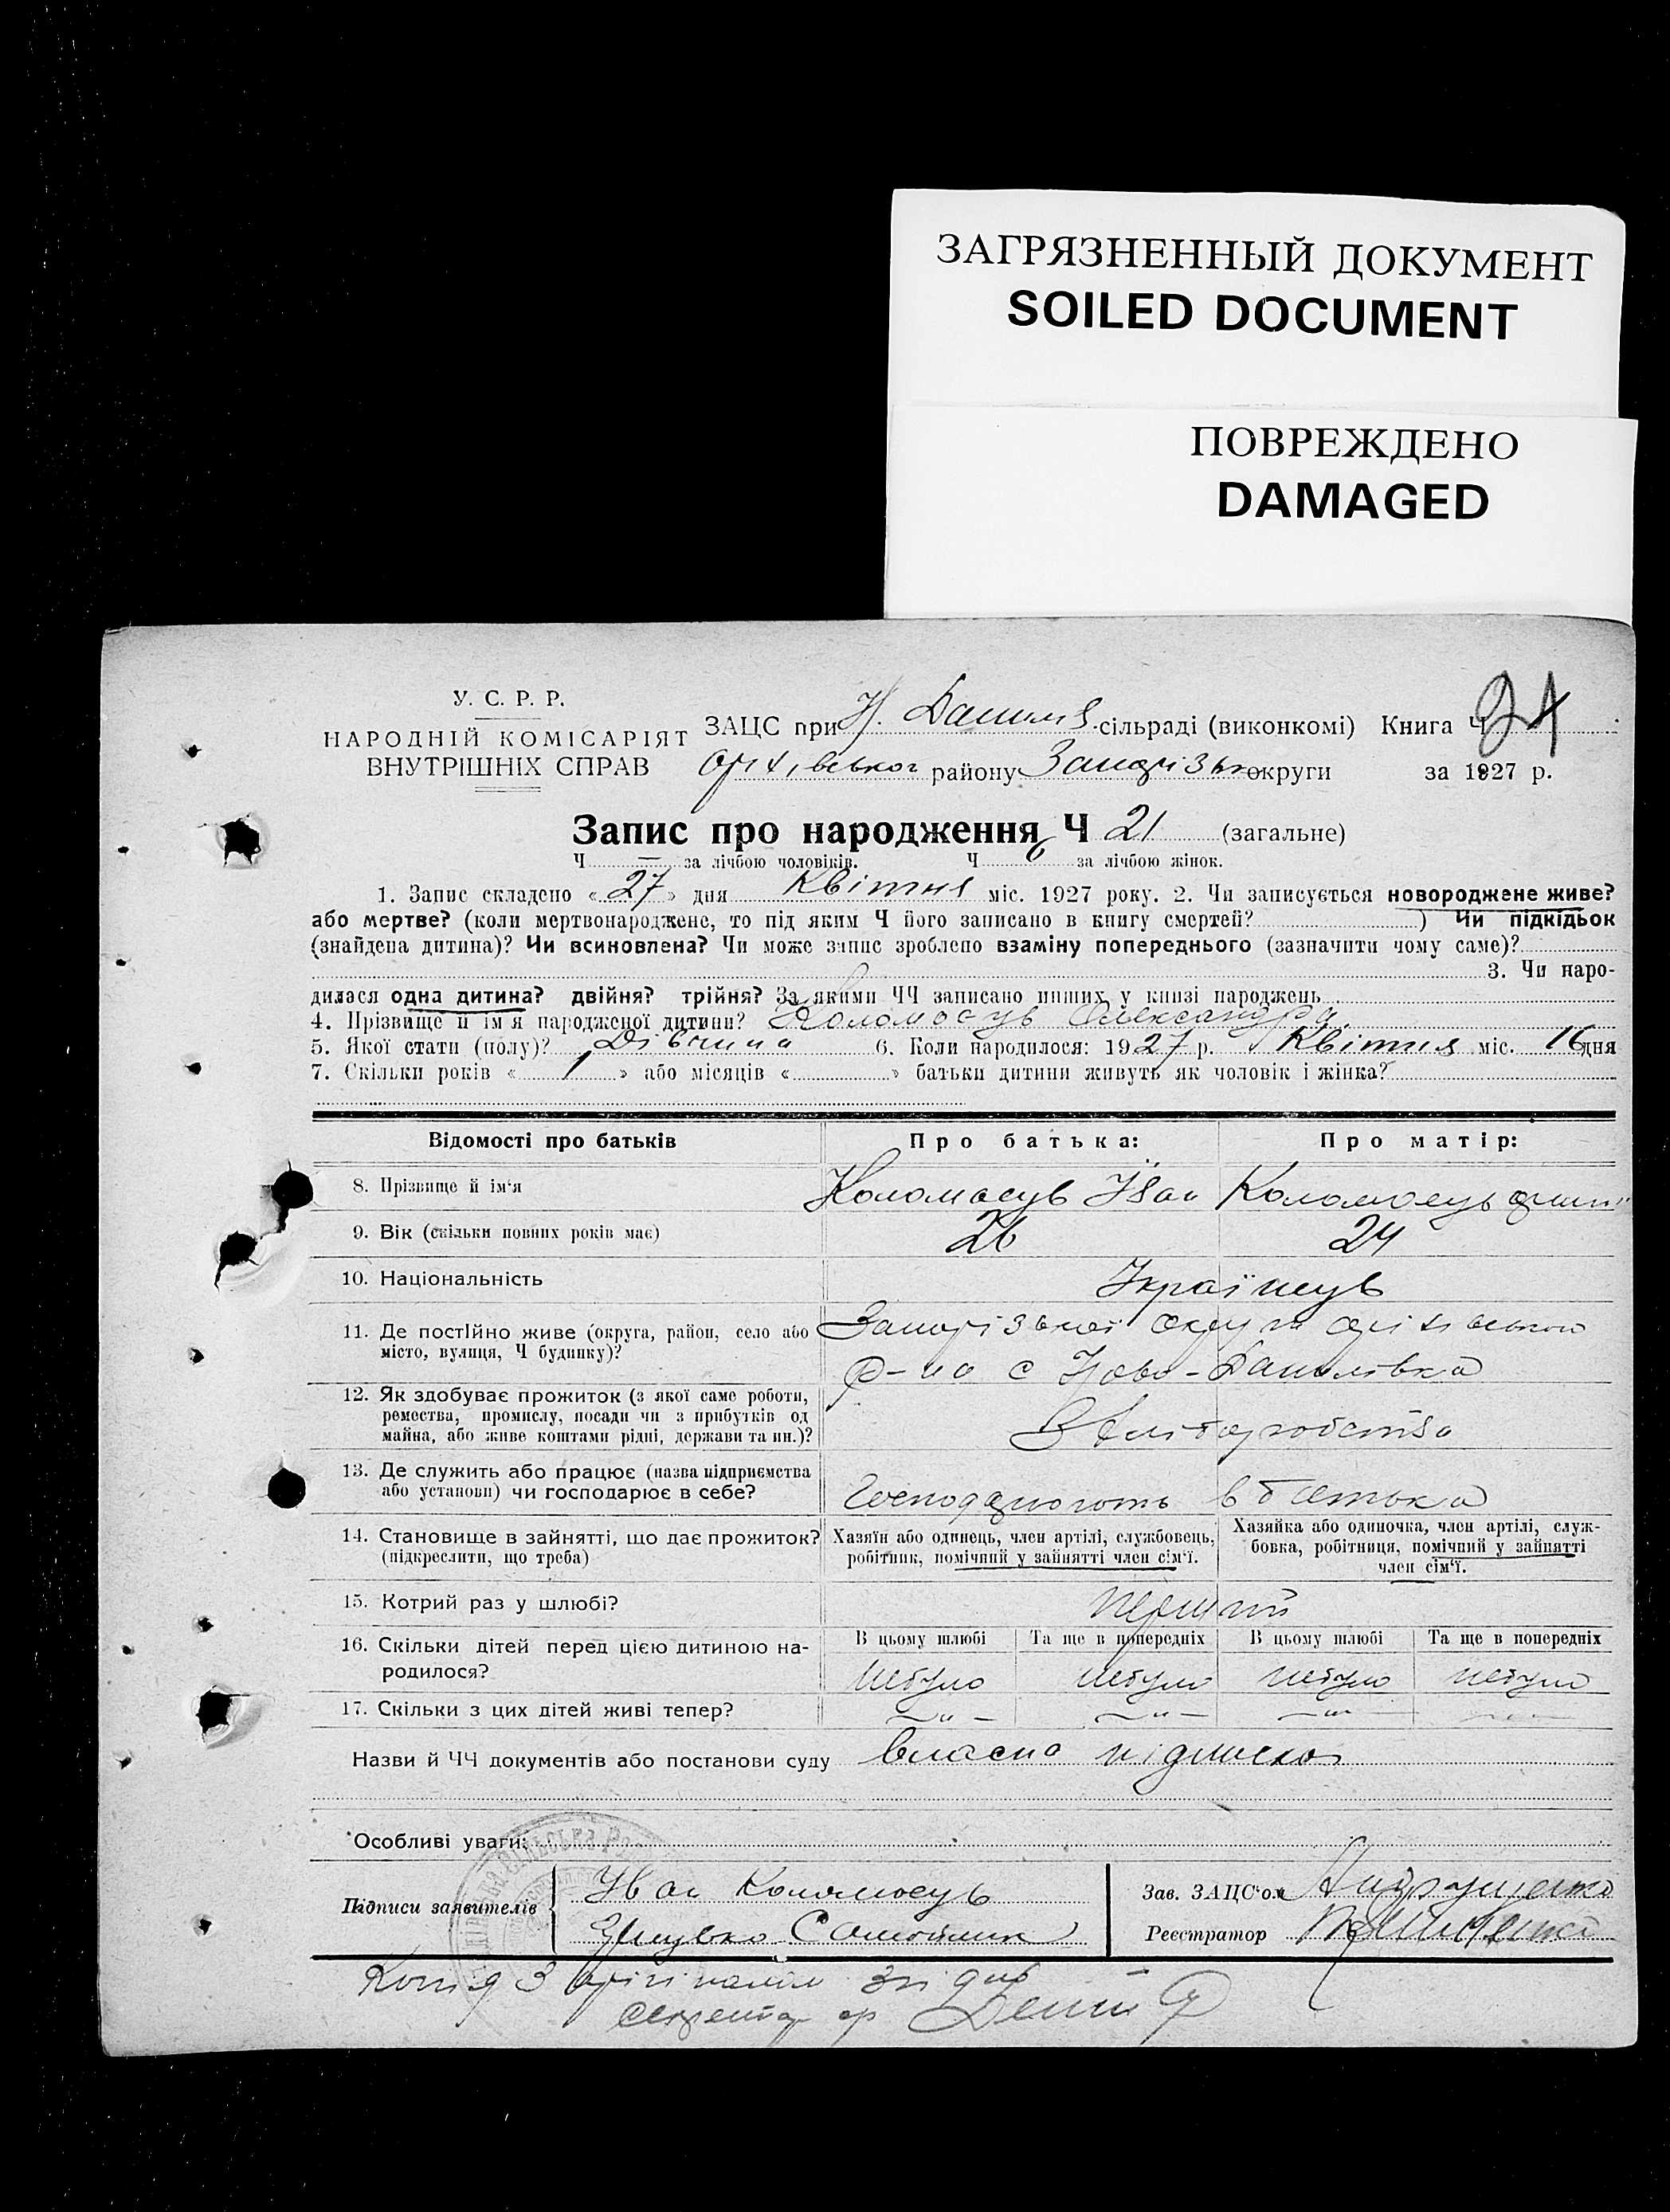 ЗАГРЯЗНЕННЫЙ ДОКУМЕНТ
SOILED DOCUMENT
ПОВРЕЖДЕНО
DAMAGED
У. С. Р. Р.
НАРОДНІЙ КОМІСАРІЯТ
ВНУТРІШНІХ СПРАВ
ЗАЦС при Н. Данилів сільраді (виконкомі) Книга Ч
району округи за 1927 р.
Запис про народження Ч 21 (загальне)
Ч — за лічбою чоловіків. Ч 6 за лічбою жінок.
1. Запис складено « 27 » дня Квітня міс. 1927 року. 2. Чи записується новороджене живе?
або мертве? (коли мертвонароджене, то під яким Ч його записано в книгу смертей? ) Чи підкідьок
(знайдена дитина)? Чи всиновлена? Чи може запис зроблено взаміну попереднього (зазначити чому саме)?
3. Чи наро-
дилася одна дитина? двійня? трійня? За якими ЧЧ записано инших у книзі народжень
4. Прізвище й ім'я народженої дитини? Коломоєць Олександра
5. Якої стати (полу)? Дівчина 6. Коли народилося: 1927 р. Квітня міс. 16 дня
7. Скільки років « 1 » або місяців « » батьки дитини живуть як чоловік і жінка?
Відомості про батьків Про батька: Про матір:
8. Прізвище й ім'я Коломоєць Іван Коломоєць
9. Вік (скільки повних років має) 26 24
10. Національність Українець
11. Де постійно живе (округа, район, село або
місто, вулиця, Ч будинку)?
р-на с Ново-Данилівка
12. Як здобуває прожиток (з якої саме роботи,
ремества, промислу, посади чи з прибутків од
майна, або живе коштами рідні, держави та ин.)?
13. Де служить або працює (назва підприємства
або установи) чи господарює в себе?
Господарюють в батька
14. Становище в зайнятті, що дає прожиток?
(підкреслити, що треба)
Хазяїн або одинець, член артілі, службовець,
робітник, помічний у зайнятті член сім'ї.
Хазяйка або одиночка, член артілі, служ-
бовка, робітниця, помічний у зайнятті
член сім'ї.
15. Котрий раз у шлюбі? перший
16. Скільки дітей перед цією дитиною на-
родилося?
В цьому шлюбі Та ще в попередніх В цьому шлюбі Та ще в попередніх
небуло небуло небуло небуло
17. Скільки з цих дітей живі тепер? —"— —"— —"— —"—
Назви й ЧЧ документів або постанови суду власна підписка
Особливі уваги:
Підписи заявителів Іван Коломоєць
Зав. ЗАЦС'ом
Реєстратор
з оригіналом